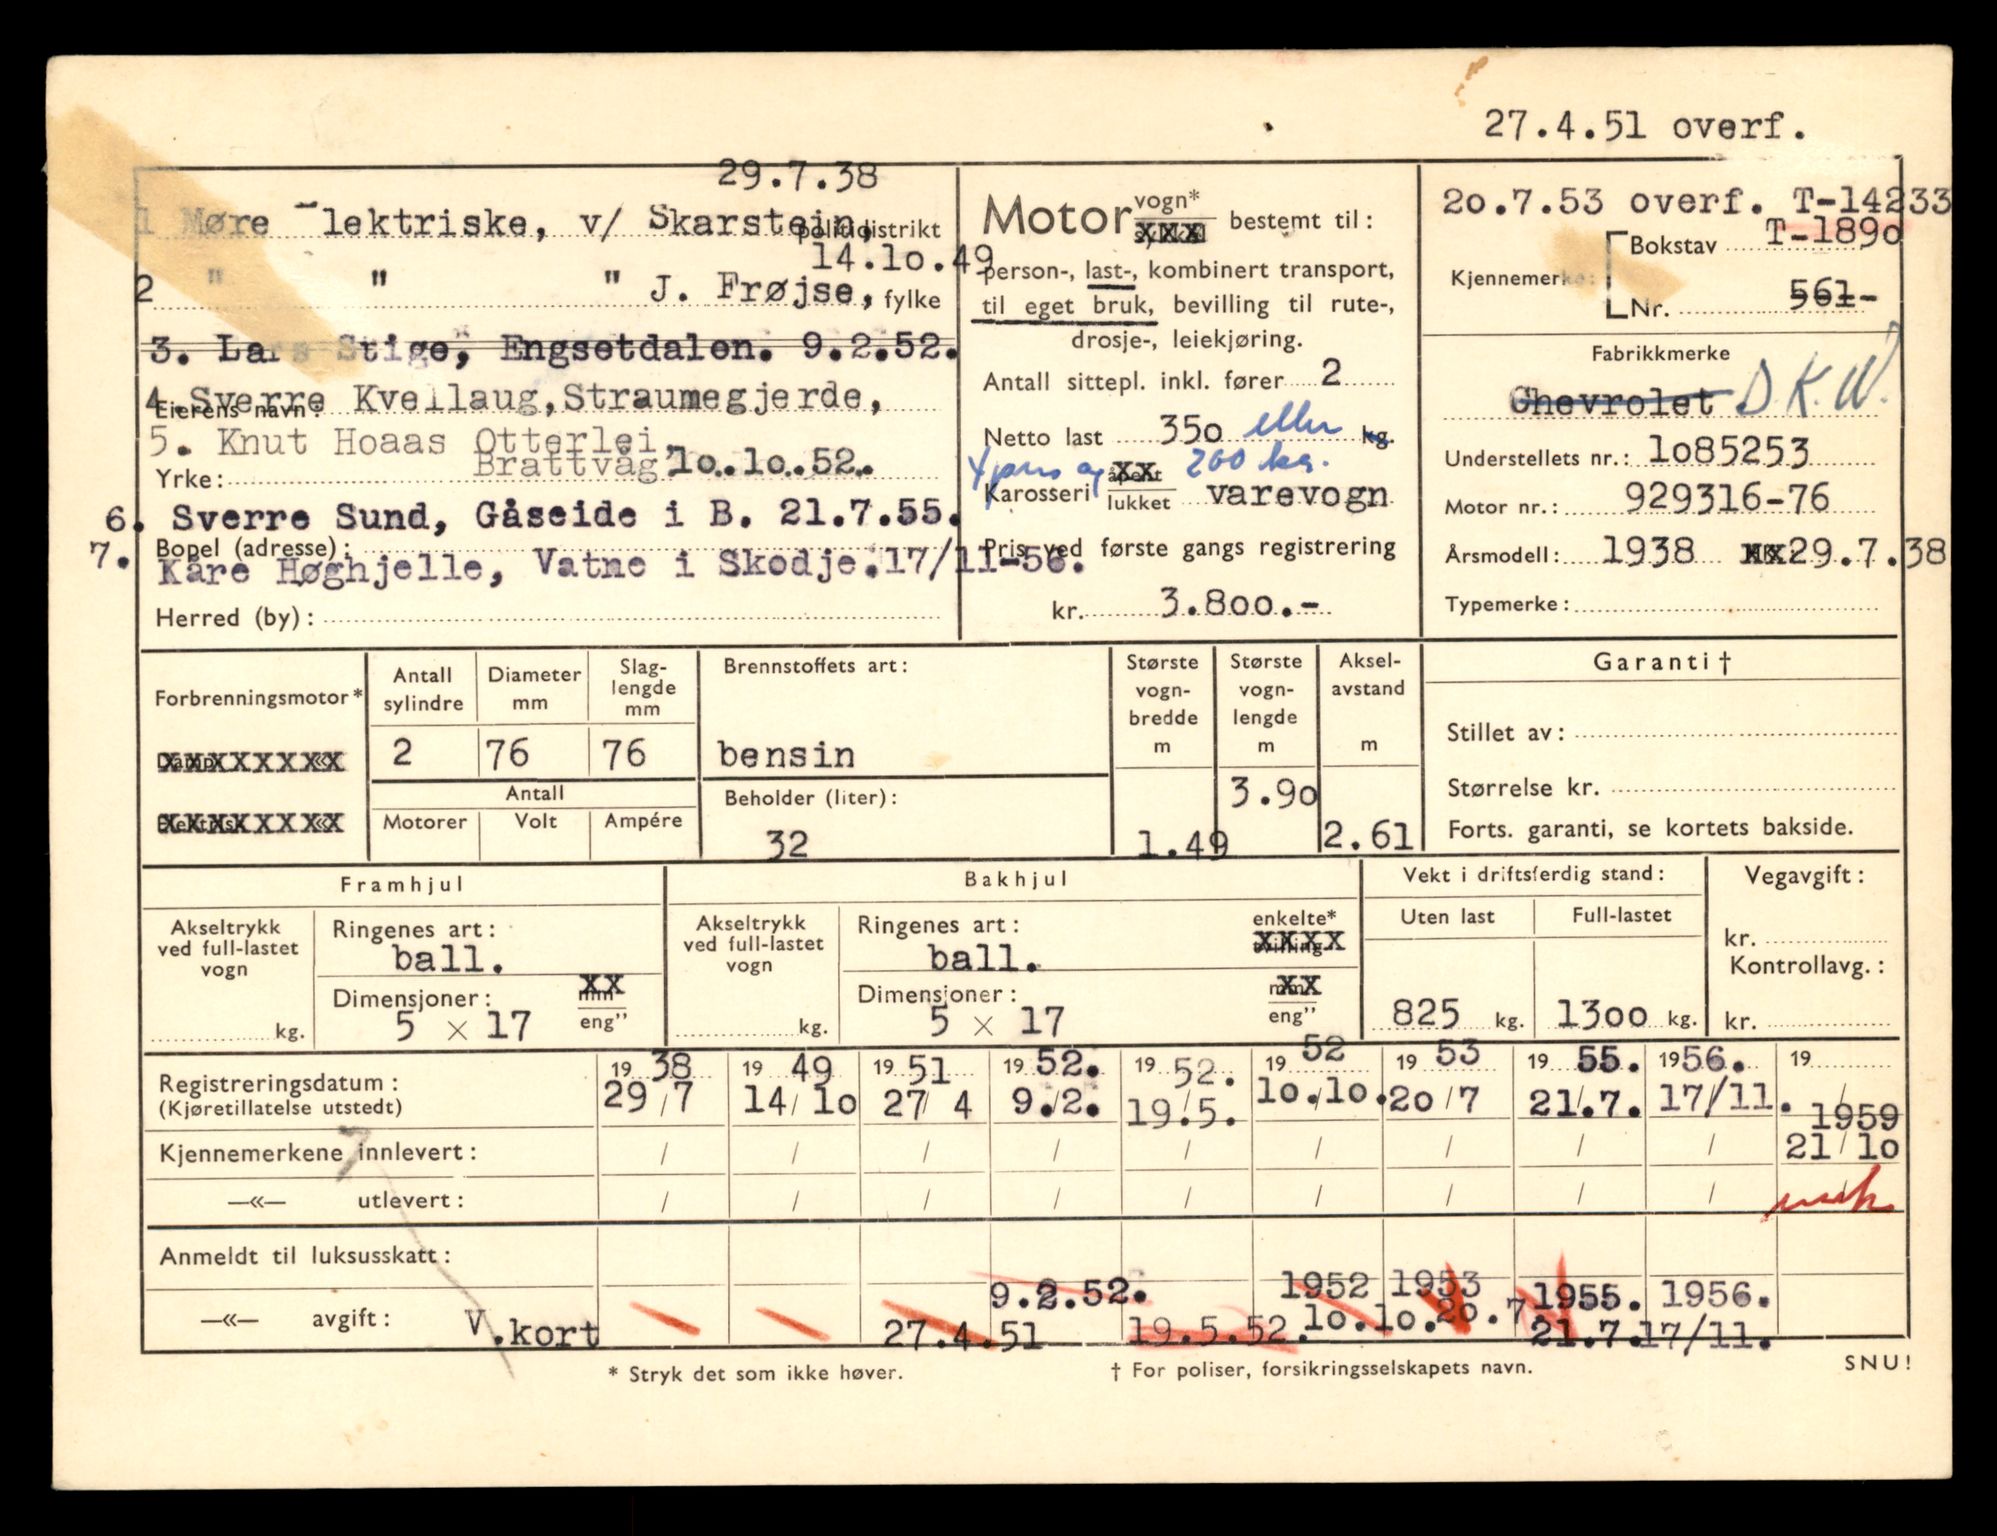 27.4.51 overf.
29.7.38
1 Møre lektriske, v/ Skarstein,
politidistrikt
14.10.49
2 " " " J. Frøjse, fylke
3. Lars Stige, Engsetdalen. 9.2.52.
4. Sverre Kvellaug, Straumegjerde,
Eierens navn:
5. Knut Hoaas Otterlei,
Brattvåg 10.10.52.
Yrke:
6. Sverre Sund, Gåseide i B. 21.7.55.
Bopel (adresse):
7. Kåre Høghjelle, Vatne i Skodje. 17/11-56.
Herred (by):
Motor vogn* bestemt til:
person-, last-, kombinert transport,
til eget bruk, bevilling til rute-,
drosje-, leiekjøring.
Antall sittepl. inkl. fører 2
Netto last 350 eller kg.
4 pers og 200 kg.
Karosseri åpent lukket varevogn
Pris ved første gangs registrering
kr. 3.800.-
20.7.53 overf. T-14233
T-1890
Kjennemerke: Bokstav
Nr. 561-
Fabrikkmerke
Chevrolet D.K.W.
Understellets nr.: 1085253
Motor nr.: 929316-76
Årsmodell: 1938 29.7.38
Typemerke:
Forbrenningsmotor*
Antall sylindre 2
Diameter mm 76
Slaglengde mm 76
Antall
Motorer Volt Ampére
Brennstoffets art:
bensin
Beholder (liter):
32
Største vognbredde m 1.49
Største vognlengde m 3.90
Akselavstand m 2.61
Garanti †
Stillet av:
Størrelse kr.
Forts. garanti, se kortets bakside.
Framhjul
Akseltrykk ved full-lastet vogn kg.
Ringenes art: ball.
Dimensjoner: mm eng"
5 × 17
Bakhjul
Akseltrykk ved full-lastet vogn kg.
Ringenes art: enkelte*
ball.
Dimensjoner: mm eng"
5 × 17
Vekt i driftsferdig stand:
Uten last Full-lastet
825 kg. 1300 kg.
Vegavgift:
kr.
Kontrollavg.:
kr.
Registreringsdatum: 1938 1949 1951 1952. 1952. 1952 1953 1955. 1956. 19
(Kjøretillatelse utstedt) 29/7 14/10 27/4 9.2. 19.5. 10.10. 20/7 21.7. 17/11. 1959
Kjennemerkene innlevert: / / / / / / / / / 21/10
7
—«— utlevert: / / / / / / / / /
Anmeldt til luksusskatt:
9.2.52. 1952 1953 1955. 1956.
—«— avgift: V.kort 27.4.51 19.5.52. 10.10. 20.7 21.7. 17/11.
* Stryk det som ikke høver.
† For poliser, forsikringsselskapets navn.
SNU!